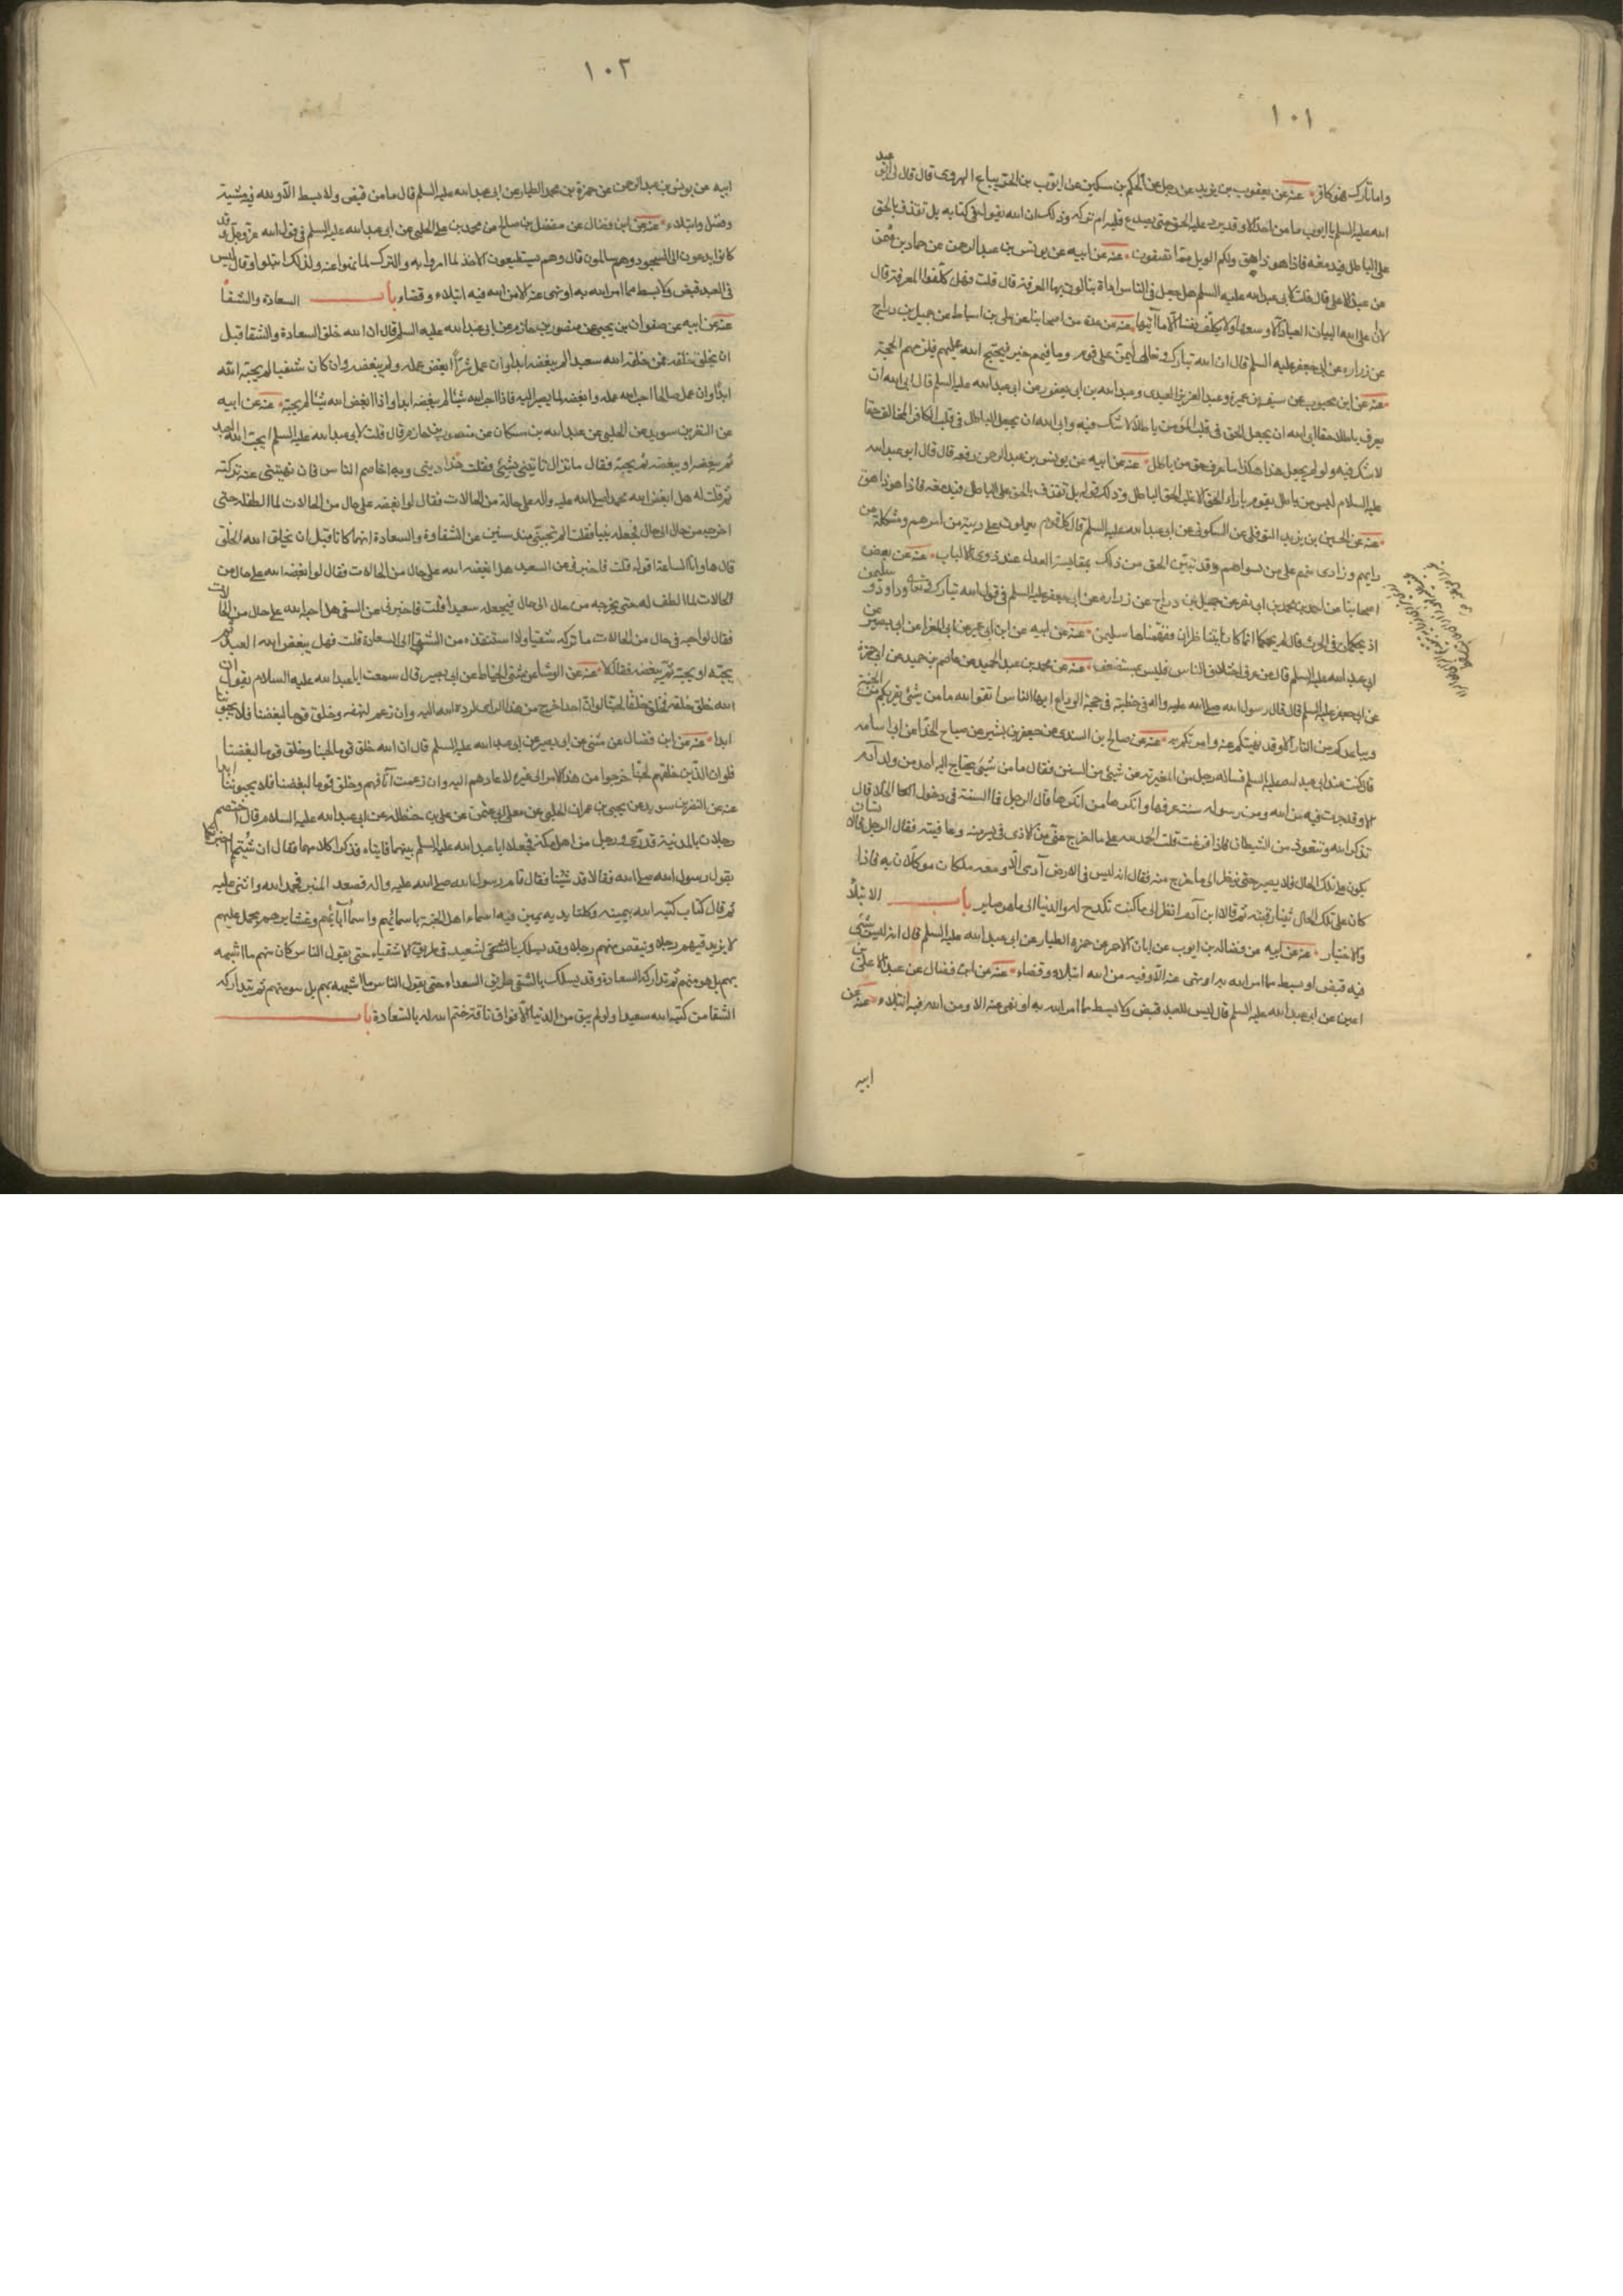 ١٠١
واما تارك فهو كافر عنه عن يعقوب بن يزيد عن رجل عن الحكم بن مسكين عن ايوب بن الحر بياع الهروى قال قال لى ابو عبد
الله عليه السلم يا ايوب ما من احد الا وقد يرد عليه الحق حتى يصدع قلبه ام تركه وذلك ان الله يقول فى كتابه بل نقذف بالحق
على الباطل فيدمغه فاذا هو زاهق ولكم الويل مما تصفون عنه عن ابيه عن يونس بن عبد الرحمن عن حماد بن عثمن
عن عبد الاعلى قال قلت لابى عبد الله عليه السلم هل جعل فى الناس اداة ينالون بها المعرفة قال قلت فهل كلفوا المعرفة قال
لا ان على الله البيان لا يكلف الله العباد الا وسعها ولا يكلف نفسا الا ما آتيها عنه عن عدة من اصحابنا عن على بن اسباط عن جميل بن دراج
عن زراره عن ابى جعفر عليه السلم قال ان الله تبارك وتعالى ليمن على قوم وما فيهم خير فيحتج الله عليهم فيلزمهم الحجة
عنه عن ابن محبوب عن سيف بن عميرة وعبد العزيز العبدى وعبد الله بن ابى يعفور عن ابى عبد الله عليه السلم قال ابى الله ان
يعرف باطلا حقا ابى الله ان يجعل الحق فى قلب المؤمن باطلا لا شك فيه وابى الله ان يجعل الباطل فى قلب الكافر المخالف حقا
لا شك فيه ولو لم يجعل هذا هكذا ما عرف حق من باطل عنه عن ابيه عن يونس بن عبد الرحمن رفعه قال قال ابو عبد الله
عليه السلام ليس من باطل يقوم بازاء الحق الا غلب الحق الباطل وذلك قوله بل نقذف بالحق على الباطل فيدمغه فاذا هو زاهق
عنه عن الحسين بن يزيد النوفلى عن السكونى عن ابى عبد الله عليه السلم قال كل قوم يعملون على ريبة من امرهم ومشكلة من
رايهم وزارى منهم على من سواهم وقد تبين الحق من ذلك بمقايسة العدل عند ذوى الالباب عنه عن بعض
اصحابنا عن احمد بن محمد بن ابى نصر عن جميل بن دراج عن زراره عن ابى جعفر عليه السلم فى قول الله تبارك وتعالى وداود و سليمن
اذ يحكمان فى الحرث قال لم يحكما انما كانا يتناظران ففهمناها سليمن عنه عن ابيه عن ابن ابى عمير عن ابى المغرا عن ابى بصير عن
ابى عبد الله عليه السلم قال من عرف اختلاف الناس فليس بمستضعف عنه عن محمد بن عبد الحميد عن عاصم بن حميد عن ابى حمزة
عن ابى جعفر عليه السلم قال قال رسول الله صلى الله عليه واله فى خطبته فى حجة الوداع ايها الناس اتقو الله ما من شيئ يقربكم من الجنة
ويباعدكم من النار الا وقد نهيتكم عنه وامرتكم به عنه عن صالح بن السندى عن جعفر بن بشير عن صباح الحذا عن ابى اسامه
قال كنت عند ابى عبد الله عليه السلم فساله رجل من المغيرية عن شيئ من السنن فقال ما من شيئ يحتاج اليه احد من ولد آدم
الا وقد جرت فيه من الله ومن رسوله سنة عرفها وانكرها من انكرها قال الرجل فما السنة فى دخول الخلا قال
تذكر الله وتتعوذ من الشيطان فاذا فرغت قلت الحمد لله على ما اخرج منى من الاذى فى يسر منه وعافيته فقال الرجل فالانسان
يكون على تلك الحال فلا يصبر حتى ينظر الى ما خرج منه فقال انه ليس فى الارض آدمى الا ومعه ملكان موكلان به فاذا
كان على تلك الحال ثنيا رقبته ثم قالا ابن آدم انظر الى ما كنت تكدح له والدنيا الى ما هو صاير باب الابتلا
والاختبار عنه عن ابيه عن فضاله بن ايوب عن ابان الاحمر عن حمزه الطيار عن ابى عبد الله عليه السلم قال انه ليس شيئ
فيه قبض او بسط مما امر الله به او نهى عنه الا وفيه من الله ابتلاء وقضاء عنه عن ابن فضال عن عبد الاعلى بن
اعين عن ابى عبد الله عليه السلم قال ليس للعبد قبض ولا بسط مما امر الله به او نهى عنه الا ومن الله فيه ابتلاء عنه عن
ابيه
١٠٢
ابيه عن يونس بن عبد الرحمن عن حمزة بن محمد الطيار عن ابى عبد الله عليه السلم قال ما من قبض ولا بسط الا ولله فيه مشية
وفضل وابتلاء عنه عن ابن فضال عن مفضل بن صالح عن محمد بن على الحلبى عن ابى عبد الله عليه السلم فى قول الله عز وجل وقد
كانوا يدعون الى السجود وهم سالمون قال وهم يستطيعون الاخذ لما امروا به والترك لما نهوا عنه ولذلك ابتلوا وقال ليس
فى العبد قبض ولا بسط مما امر الله به او نهى عنه الا من الله فيه ابتلاء وقضاء باب السعادة والشقا
عنه عن ابيه عن صفوان بن يحيى عن منصور بن حازم عن ابى عبد الله عليه السلم قال ان الله خلق السعادة والشقا قبل
ان يخلق خلقه فمن خلقه الله سعيدا لم يبغضه ابدا وان عمل شرا ابغض عمله ولم يبغضه وان كان شقيا لم يحبه الله
ابدا وان عمل صالحا احب الله عمله وابغضه لما يصير اليه فاذا احب الله شيئا لم يبغضه ابدا واذا ابغض الله شيئا لم يحبه عنه عن ابيه
عن النضر بن سويد عن الحلبى عن عبد الله بن مسكان عن منصور بن حازم قال قلت لابى عبد الله عليه السلم ايحب الله العبد
ثم يبغضه او يبغضه ثم يحبه فقال ما تزال تاتينى بشيئ فقلت هذا دينى وبه اخاصم الناس فان نهيتنى عنه تركته
ثم قلت له هل ابغض الله محمدا صلى الله عليه واله على حالة من الحالات فقال لو ابغضه على حال من الحالات لما الطف له حتى
اخرجه من حال الى حال فجعله نبيا فقلت الم تجبنى منذ سنين عن الشقاوة والسعادة انهما كانا قبل ان يخلق الله الخلق
قال بلى وانا الساعة اقوله قلت فاخبرنى عن السعيد هل ابغضه الله على حال من الحالات فقال لو ابغضه الله على حال من
الحالات لما الطف له حتى يخرجه من حال الى حال فيجعله سعيدا قلت فاخبرنى عن الشقى هل احبه الله على حال من الحالات
فقال لو احبه فى حال من الحالات ما تركه شقيا ولا استنقذه من الشقا الى السعادة قلت فهل يبغض الله العبد ثم
يحبه او يحبه ثم يبغضه فقال لا عنه عن الوشا عن مثنى الحناط عن ابى بصير قال سمعت ابا عبد الله عليه السلام يقول ان
الله خلق خلقه فخلق خلقا لحبنا لو ان احدا خرج من هذا الراى لرده الله اليه وان رغم انفه وخلق قوما لبغضنا فلا يحبونا
ابدا عنه عن ابن فضال عن مثنى عن ابى بصير عن ابى عبد الله عليه السلم قال ان الله خلق قوما لحبنا وخلق قوما لبغضنا
فلو ان الذين خلقهم لحبنا خرجوا من هذا الامر الى غيره لاعادهم اليه وان رغمت آنافهم وخلق قوما لبغضنا فلا يحبوننا ابدا
عنه عن النضر بن سويد عن يحيى بن عمران الحلبى عن معلى ابى عثمن عن على بن حنظله عن ابى عبد الله عليه السلام قال اختصم
رجلان بالمدينة قدرى ورجل من اهل مكة فجعلا ابا عبد الله عليه السلم بينهما فاتياه فذكرا كلامهما فقال ان شئتما اخبرتكما
بقول رسول الله صلى الله فقالا قد شئنا فقال قام رسول الله صلى الله عليه واله فصعد المنبر فحمد الله واثنى عليه
ثم قال كتاب كتبه الله بيمينه وكلتا يديه يمين فيه اسماء اهل الجنة باسمائهم واسما آبائهم وعشايرهم مجمل عليهم
لا يزيد فيهم رجلا وينقص منهم رجلا وقد يسلك بالسعيد فى طريق الاشقياء حتى يقول الناس كان منهم ما اشبهه
بهم بل هو منهم ثم تداركه السعادة وقد يسلك بالشقى طريق السعداء حتى يقول الناس ما اشبهه بهم بل هو منهم ثم يتداركه
الشقا من كتبه الله سعيدا ولو لم يبق من الدنيا الا فواق ناقة ختم الله له بالسعادة باب